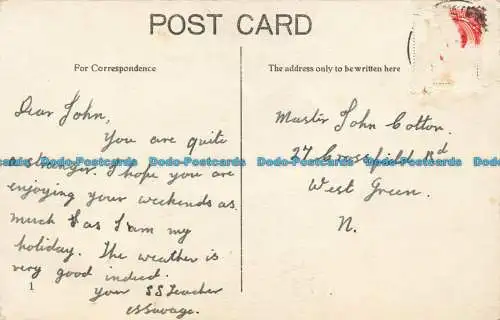 POST CARD
For Correspondence
The address only to be written here
Dear John,
You are quite
a stranger. I hope you are
enjoying your weekends as
much as I am my
holiday. The weather is
very good indeed.
your SS Teacher
Savage.
1
Master John Cotton.
27 Crossfield Rd
West Green.
N.
Dodo-Postcards Dodo-Postcards Dodo-Postcards Dodo-Postcards Dodo-Postcards